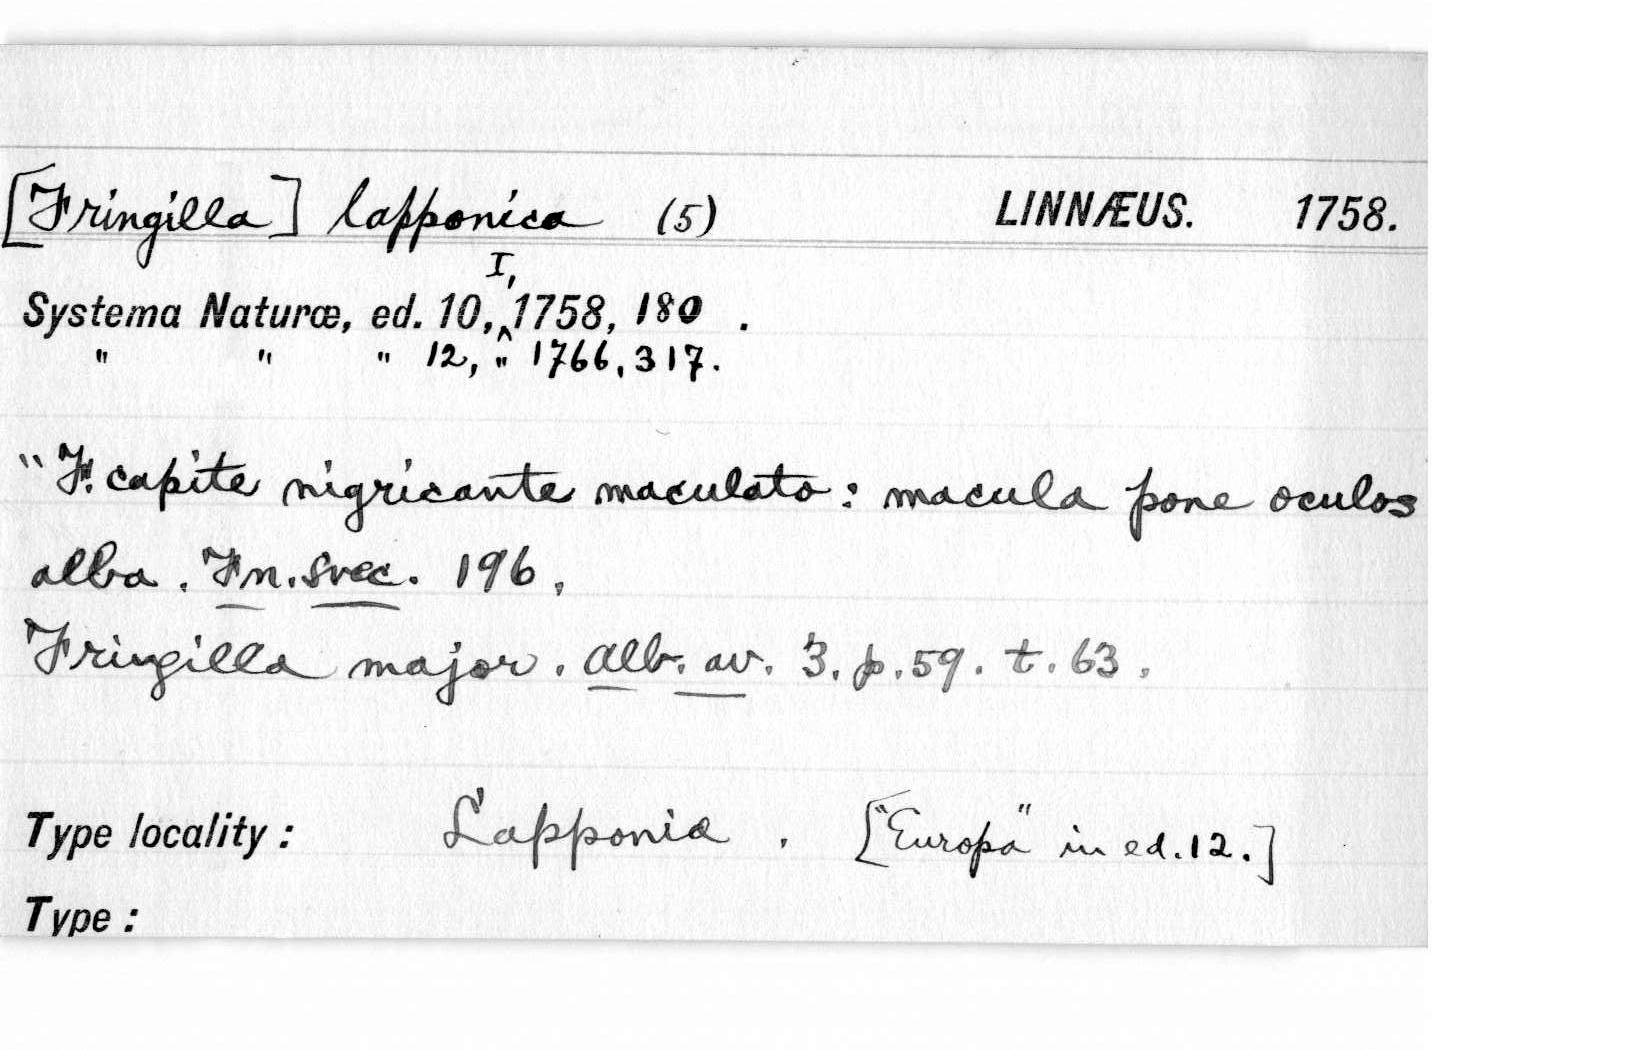 [Fringilla] lapponica (5) LINNÆUS. 1758.
I,
Systema Naturæ, ed. 10,^1758, 180 .
" " " 12, " 1766, 317.
"F. capite nigricante maculato: macula pone oculos
alba. Fn. svec. 196.
Fringilla major. Alb. av. 3. p. 59. t. 63.
Type locality: Lapponia. ["Europa" in ed. 12.]
Type: